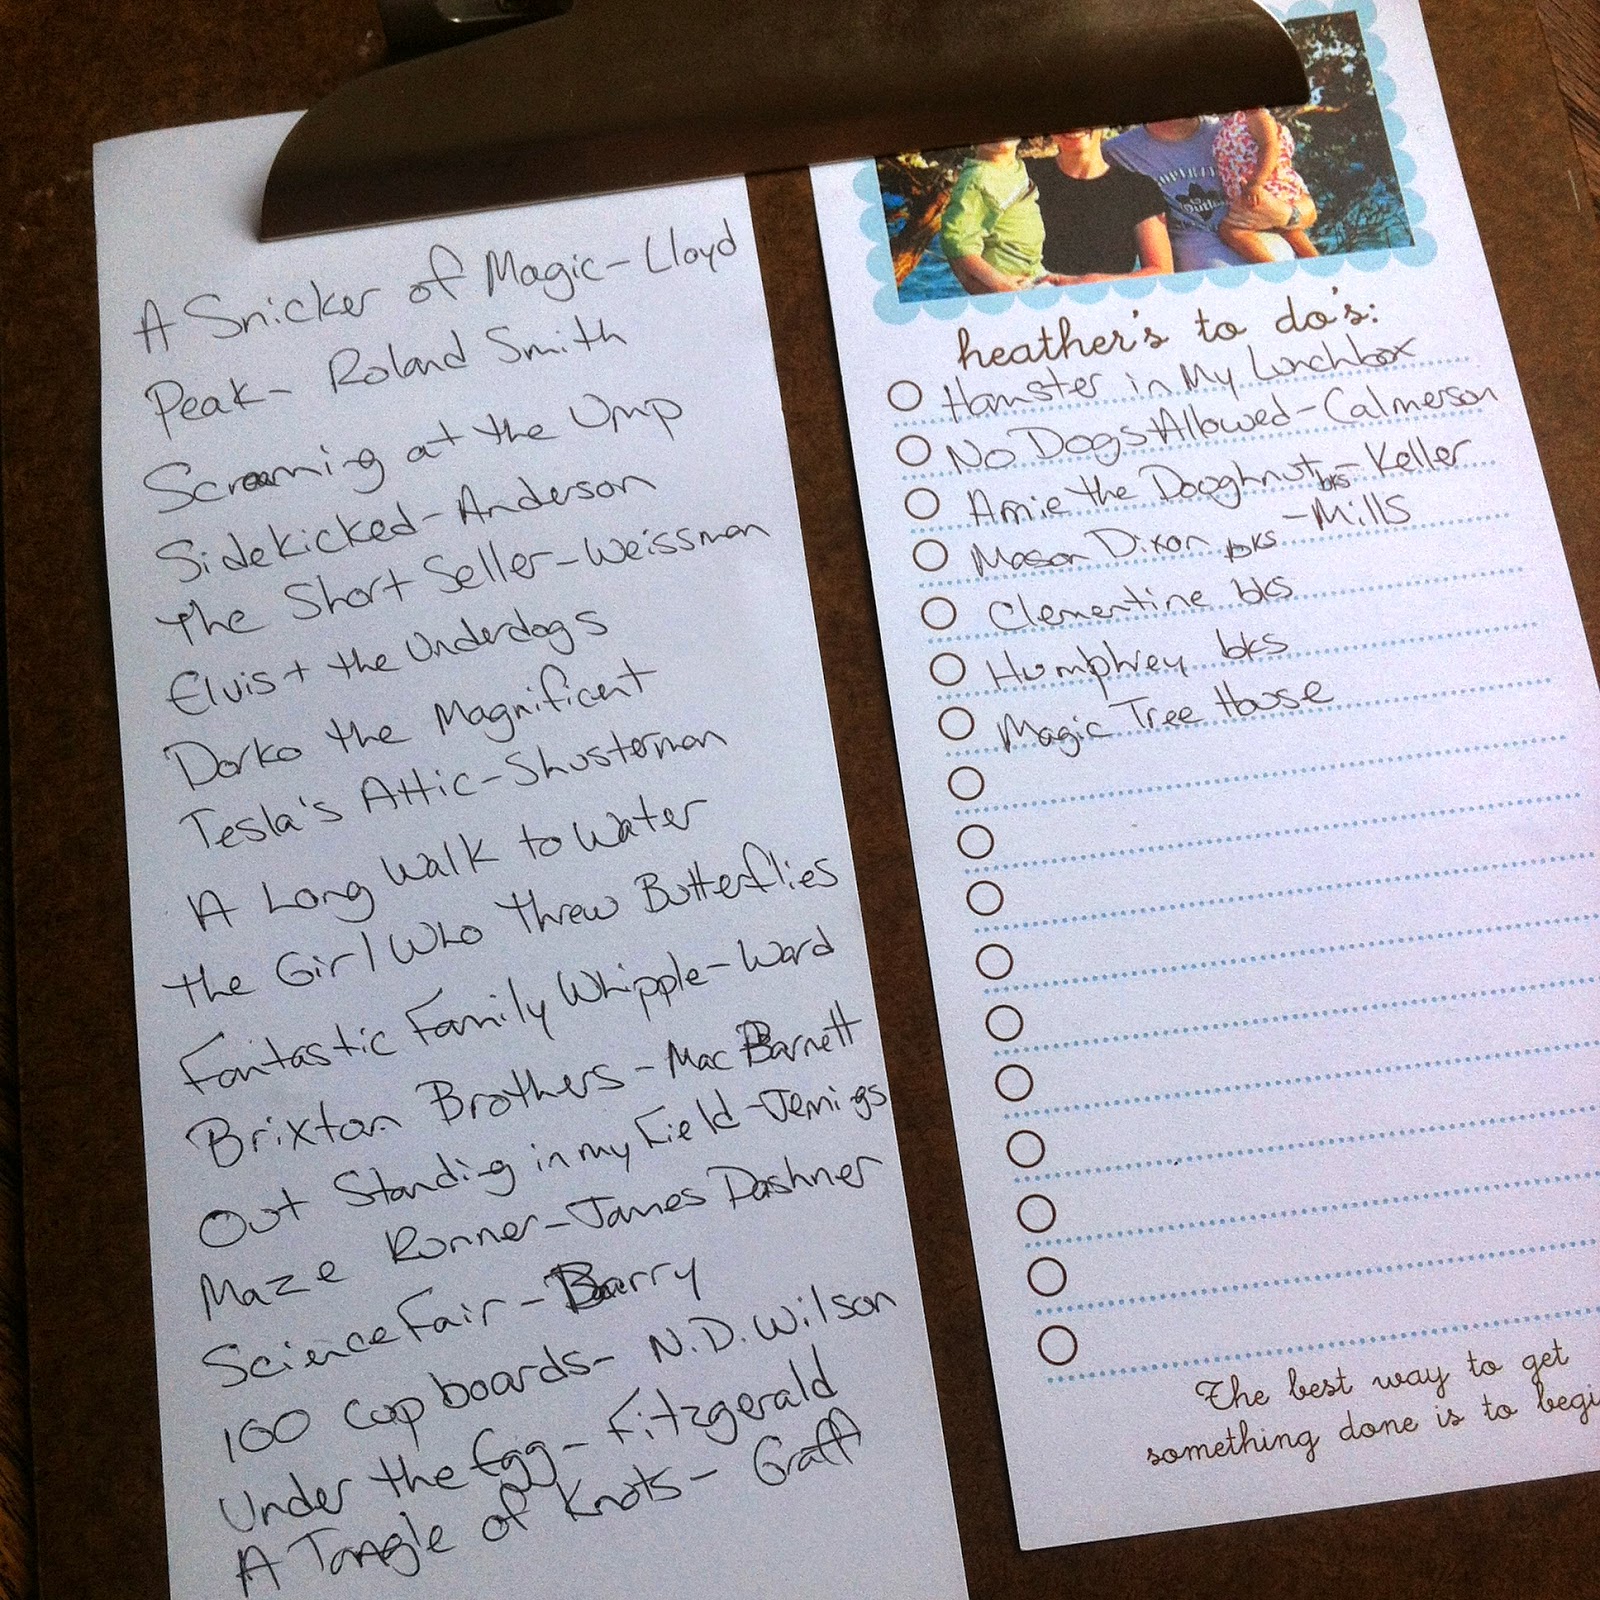 A Snicker of Magic - Lloyd
Peak - Roland Smith
Screaming at the Ump
Sidekicked - Anderson
The Short Seller - Weissman
Elvis + the Underdogs
Dorko the Magnificent
Tesla's Attic - Shusterman
A Long Walk to Water
the Girl Who threw Butterflies
Fantastic Family Whipple - Ward
Brixton Brothers - Mac Barnett
Out Standing in my Field - Jennigs
Maze Runner - James Dashner
Science Fair - Barry
100 Cupboards - N.D. Wilson
Under the Egg - Fitzgerald
A Tangle of Knots - Graff
heather's to do's:
Hamster in My Lunchbox
No Dogs Allowed - Calmerson
Arnie the Doughnut bks - Keller
Mason Dixon bks - Mills
Clementine bks
Humphrey bks
Magic Tree House
The best way to get
something done is to